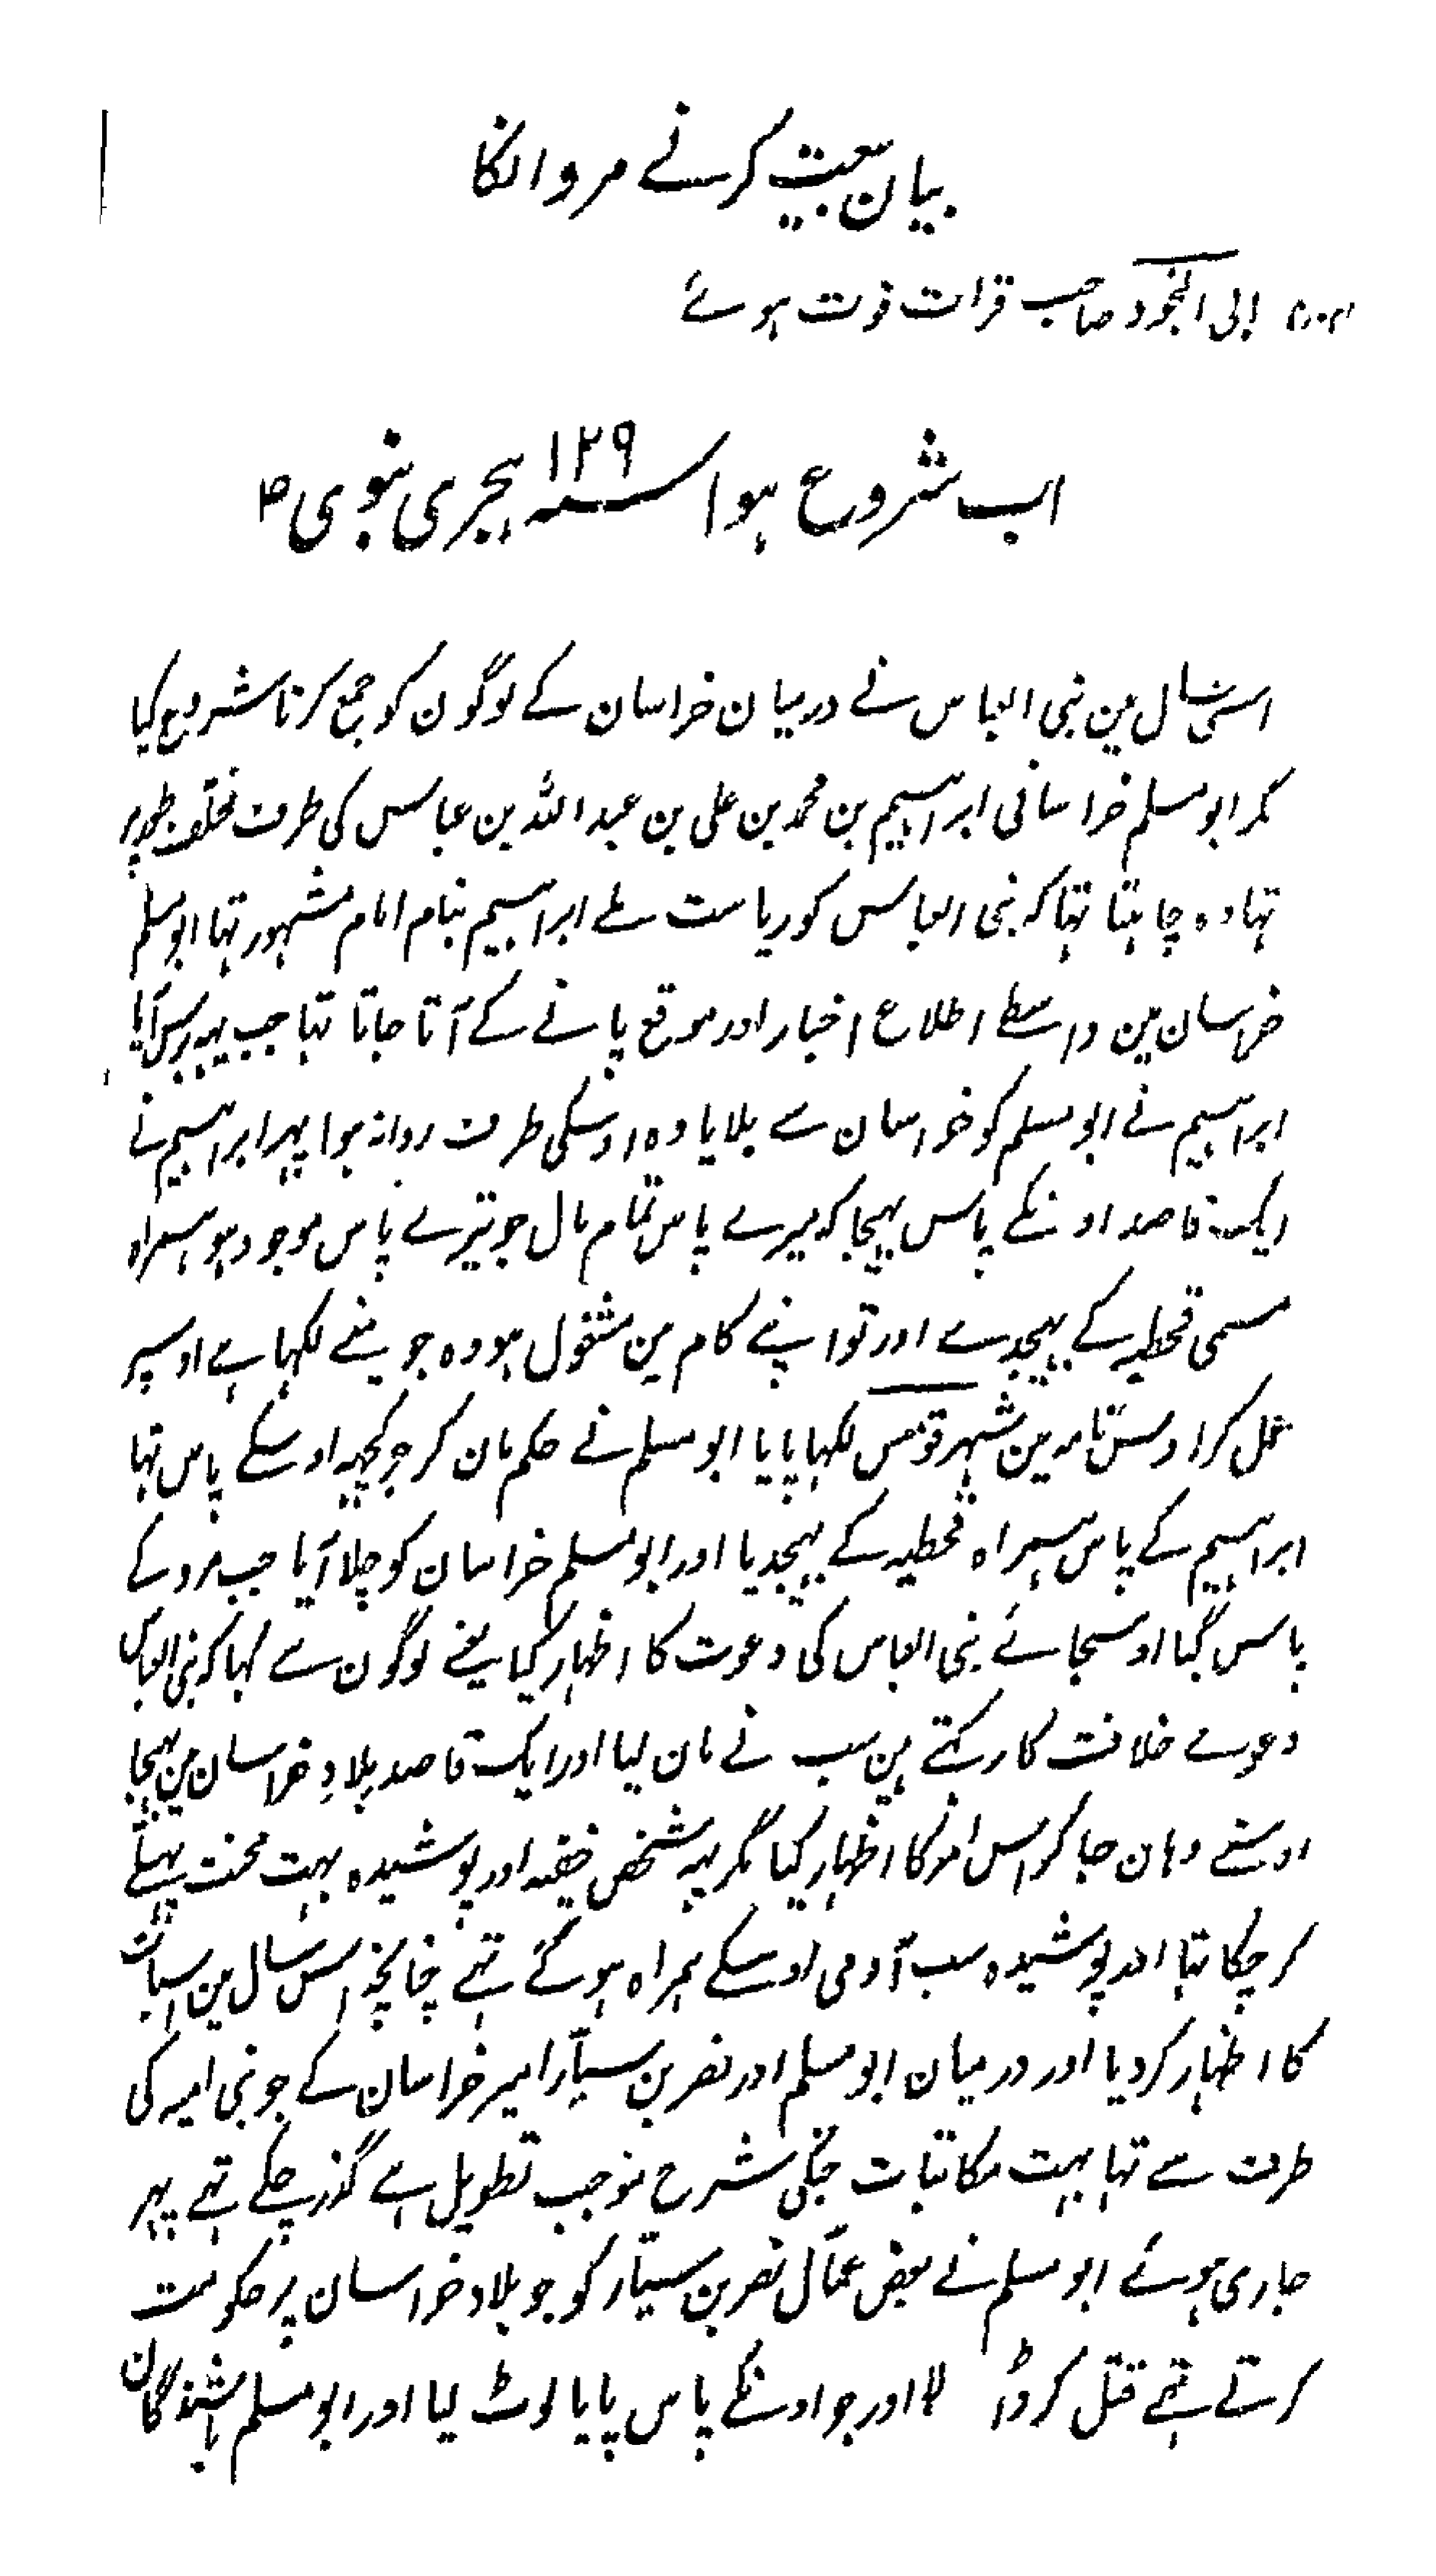 بیان بیعت کرنے مروانکا
ابی النجود صاحب قرات فوت ہوئے
اب شروع ہوا سنہ ۱۲۹ ہجری نبوی ۴
اسی سال مین بنی العباس نے درمیان خراسان کے لوگون کو جمع کرنا شروع کیا
مگر ابو مسلم خراسانی ابراہیم بن محمد بن علی بن عبد اللہ بن عباس کی طرف مختلف طور پر
تہا وہ چاہتا تہا کہ بنی العباس کو ریاست ملے ابراہیم بنام امام مشہور تہا ابو مسلم
خراسان مین واسطے اطلاع اخبار اور موقع پانے کے آتا جاتا تہا جب یہہ برس آیا
ابراہیم نے ابو مسلم کو خراسان سے بلایا وہ اوسکی طرف روانہ ہوا پہر ابراہیم نے
ایک قاصد اونکے پاس بہیجا کہ میرے پاس تمام مال جو تیرے پاس موجود ہو ہمراہ
مسمی قحطبہ کے بہیجدے اور تو اپنے کام مین مشغول ہو وہ جو مینے لکہا ہے اوسپر
عمل کر اوس نامہ مین شہر قومس لکہا پایا ابو مسلم نے حکم مان کر جو کچہہ اوسکے پاس تہا
ابراہیم کے پاس ہمراہ قحطبہ کے بہیجدیا اور ابو مسلم خراسان کو چلا آیا جب مرو کے
پاس گیا اوسجائے بنی العباس کی دعوت کا اظہار کیا یعنے لوگون سے کہا کہ بنی العباس
دعوے خلافت کا رکہتے ہین سب نے مان لیا اور ایک قاصد بلادِ خراسان مین بہیجا
اوسنے وہان جا کر اس امر کا اظہار کیا مگر یہہ شخص خفیہ اور پوشیدہ بہت محنت پہلے
کر چکا تہا اور پوشیدہ سب آدمی اوسکے ہمراہ ہو گئے تہے چنانچہ اس سال مین اسبات
کا اظہار کر دیا اور درمیان ابو مسلم اور نصر بن سیّار امیر خراسان کے جو بنی امیہ کی
طرف سے تہا بہت مکاتبات جنکی شرح موجب تطویل ہے گذر چکے تہے پہر
جاری ہوئے ابو مسلم نے بعض عمّال نصر بن سیّار کو جو بلاد خراسان پر حکومت
کرتے تہے قتل کر ڈالا اور جو اونکے پاس پایا لوٹ لیا اور ابو مسلم باشندگان